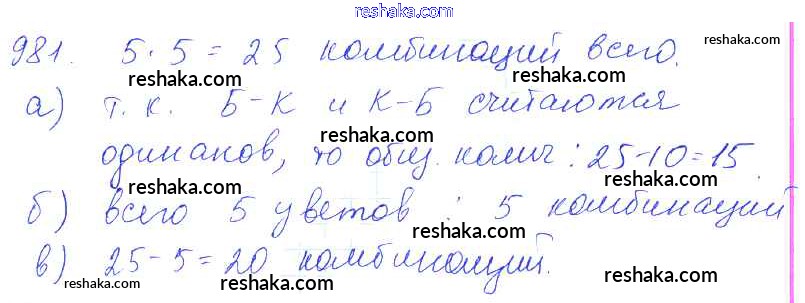 reshaka.com
981. 5·5=25 комбинаций всего.
reshaka.com reshaka.com
а) т.к. Б-К и К-Б считаются
reshaka.com
одинаков, то общ. колич: 25-10=15
reshaka.com reshaka.com
б) всего 5 цветов : 5 комбинаций
reshaka.com
в) 25-5=20 комбинаций.
reshaka.com reshaka.com reshaka.com